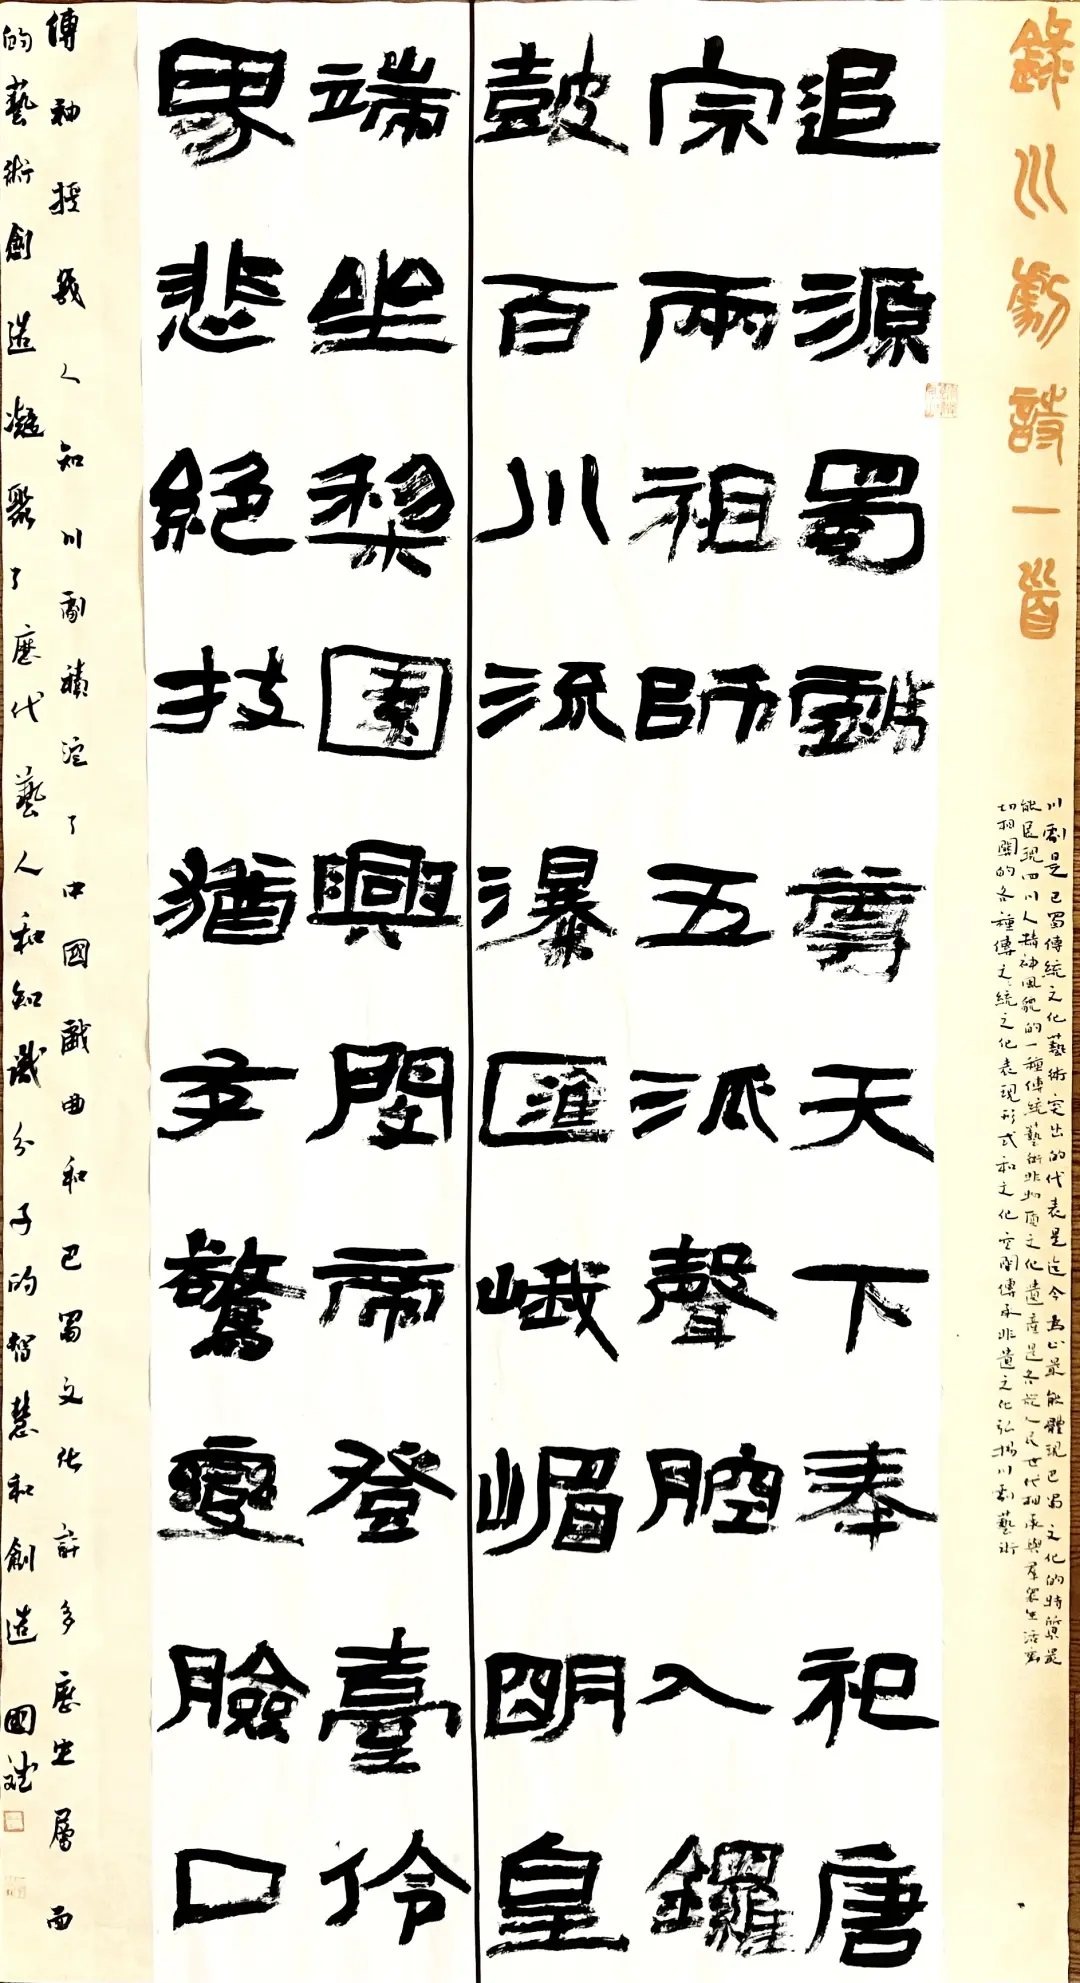 錄川劇詩一首
川劇是巴蜀傳統文化藝術突出的代表是迄今為止最能體現巴蜀文化的特質最
能展現四川人精神風貌的一種傳統藝術非物質文化遺產是各族人民世代相承與群眾生活密
切相關的各種傳之統文化表現形式和文化空間傳承非遺文化弘揚川劇藝術
追源蜀戲尊天下奉祀唐
宗兩祖師五派聲腔入鑼
鼓百川流瀑匯峨嵋明皇
端坐梨園興閏帝登臺伶
界悲絕技猶多驚變臉口
傳神授幾人知川劇積淀了中國戲曲和巴蜀文化許多歷史層面
的藝術創造凝聚了歷代藝人和知識分子的智慧和創造 國斌